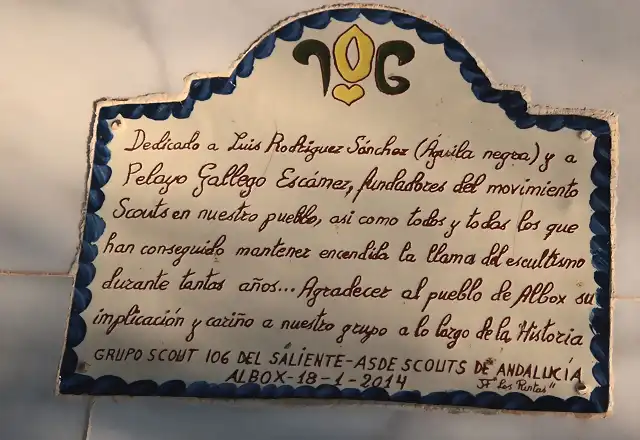 106
Dedicado a Luis Rodríguez Sánchez (Águila negra) y a
Pelayo Gallego Escámez, fundadores del movimiento
Scouts en nuestro pueblo, asi como todos y todas los que
han conseguido mantener encendida la llama del escultismo
durante tantos años... Agradecer al pueblo de Albox su
implicación y cariño a nuestro grupo a lo largo de la Historia
GRUPO SCOUT 106 DEL SALIENTE-ASDE SCOUTS DE ANDALUCÍA
ALBOX-18-1-2014